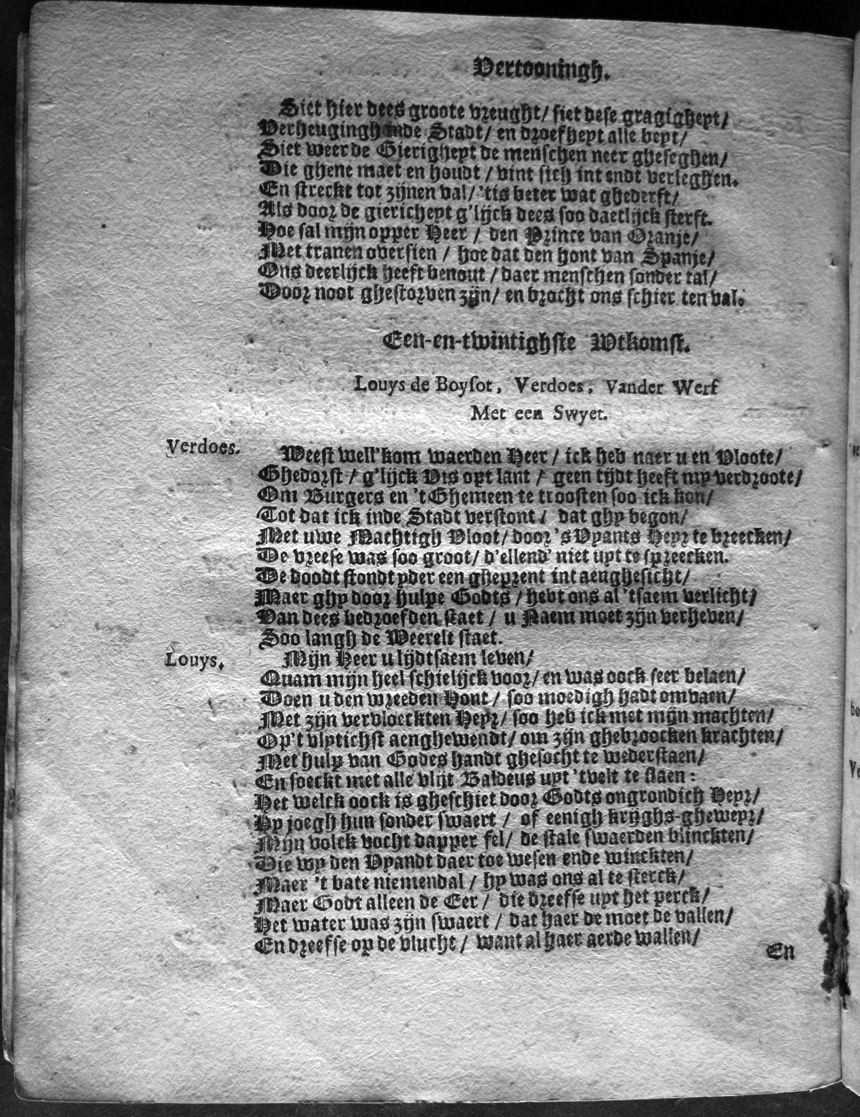 Vertooningh.
Siet hier dees groote vreught/ siet dese gragigheyt/
Verheuginghinde Stadt/ en droefheyt alle beyt/
Siet weer de Gierigheyt de menschen neer gheseghen/
Die ghene maet en houdt/ vint sich int endt verleghen.
En streckt tot zijnen val/ 'tis beter wat ghederft/
Als door de giericheyt g'lijck dees soo daetlijck sterft.
Hoe sal mijn opper Heer / den Prince van Oranje/
Met tranen oversien / hoe dat den hont van Spanje/
Ons deerlijck heeft benout / daer menschen sonder tal/
Door noot ghestorven zijn/ en brocht ons schier ten val.
Een-en-twintighste Wtkomst.
Louys de Boysot, Verdoes, Vander Werf
Met een Swyet.
Verdoes. Weest well'kom waerden Heer / ick heb naer u en Vloote/
Ghedorst / g'lijck Vis opt lant / geen tijdt heeft my verdroote/
Om Burgers en 't Ghemeen te troosten soo ick kon/
Tot dat ick inde Stadt verstont / dat ghy begon/
Met uwe Machtigh Vloot/ door 's Vyants Heyr te breecken/
De vreese was soo groot/ d'ellend' niet uyt te spreecken.
De doodt stondt yder een gheprent int aenghesicht/
Maer ghy door hulpe Godts / hebt ons al 'tsaem verlicht/
Van dees bedroefden staet / u Naem moet zijn verheven/
Soo langh de Weerelt staet.
Louys. Mijn Heer u lijdtsaem leven/
Quam mijn heel schielijck voor/ en was oock seer belaen/
Doen u den wreeden Hont / soo moedigh hadt omvaen/
Met zijn vervloeckten Heyr/ soo heb ick met mijn machten/
Op't vlytichst aenghewendt/ om zijn ghebroocken krachten/
Met hulp van Godes handt ghesocht te wederstaen/
En soeckt met alle vlijt Baldeus uyt 'tvelt te slaen:
Het welck oock is gheschiet door Godts ongrondich Heyr/
Hy joegh hun sonder swaert / of eenigh krijghs-gheweyr/
Mijn volck vocht dapper fel/ de stale swaerden blinckten/
Die wy den Vyandt daer toe wesen ende winckten/
Maer 't bate niemendal / hy was ons al te sterck/
Maer Godt alleen de Eer / die dreefse uyt het perck/
Het water was zijn swaert / dat haer de moet de vallen/
En dreefse op de vlucht / want al haer aerde wallen/
En